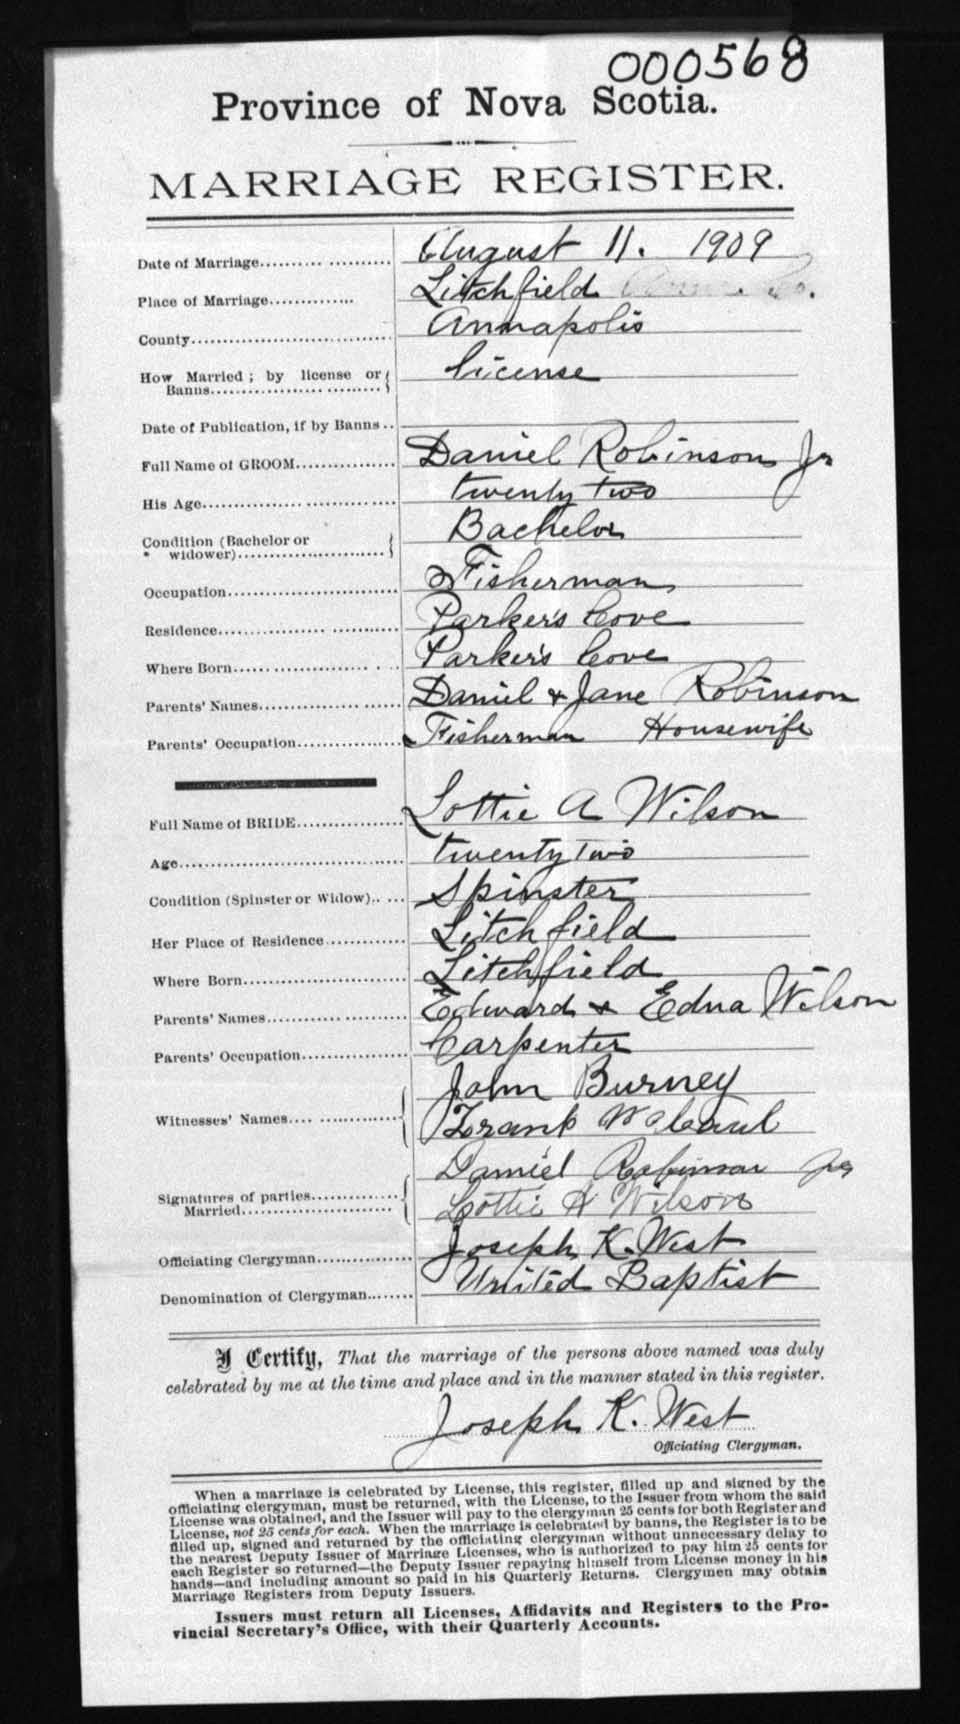 000568
Province of Nova Scotia.
MARRIAGE REGISTER.
Date of Marriage..................... August 11. 1909
Place of Marriage............. Litchfield Co.
County.............................. Annapolis
How Married; by license or
Banns........................... license
Date of Publication, if by Banns..
Full Name of GROOM............... Daniel Robinson Jr
His Age............................ twenty two
Condition (Bachelor or
" widower)...................... Bachelor
Occupation.......................... Fisherman
Residence........................... Parker's Cove
Where Born........................ Parker's Cove
Parents' Names..................... Daniel & Jane Robinson
Parents' Occupation............... Fisherman Housewife
Full Name of BRIDE............... Lottie A Wilson
Age................................. twenty two
Condition (Spinster or Widow)..... Spinster
Her Place of Residence............ Litchfield
Where Born........................ Litchfield
Parents' Names.................... Edward & Edna Wilson
Parents' Occupation............... Carpenter
John Burney
Witnesses' Names................ Frank
Daniel Robinson Jr
Signatures of parties.............
Married....................... Lottie A Wilson
Officiating Clergyman............. Joseph K. West
Denomination of Clergyman........ United Baptist
I Certify, That the marriage of the persons above named was duly
celebrated by me at the time and place and in the manner stated in this register.
Joseph K. West
Officiating Clergyman.
When a marriage is celebrated by License, this register, filled up and signed by the
officiating clergyman, must be returned, with the License, to the Issuer from whom the said
License was obtained, and the Issuer will pay to the clergyman 25 cents for both Register and
License, not 25 cents for each. When the marriage is celebrated by banns, the Register is to be
filled up, signed and returned by the officiating clergyman without unnecessary delay to
the nearest Deputy Issuer of Marriage Licenses, who is authorized to pay him 25 cents for
each Register so returned—the Deputy Issuer repaying himself from License money in his
hands—and including amount so paid in his Quarterly Returns. Clergymen may obtain
Marriage Registers from Deputy Issuers.
Issuers must return all Licenses, Affidavits and Registers to the Pro-
vincial Secretary's Office, with their Quarterly Accounts.